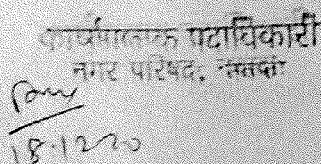 कार्यपालक पदाधिकारी
नगर परिषद,
18.12.20